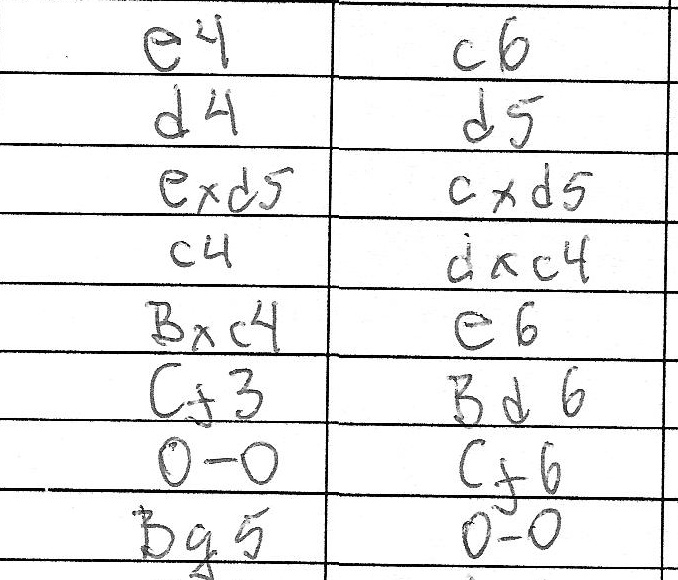 e4 c6
d4 d5
exd5 cxd5
c4 dxc4
Bxc4 e6
Cf3 Bd6
0-0 Cf6
Bg5 0-0